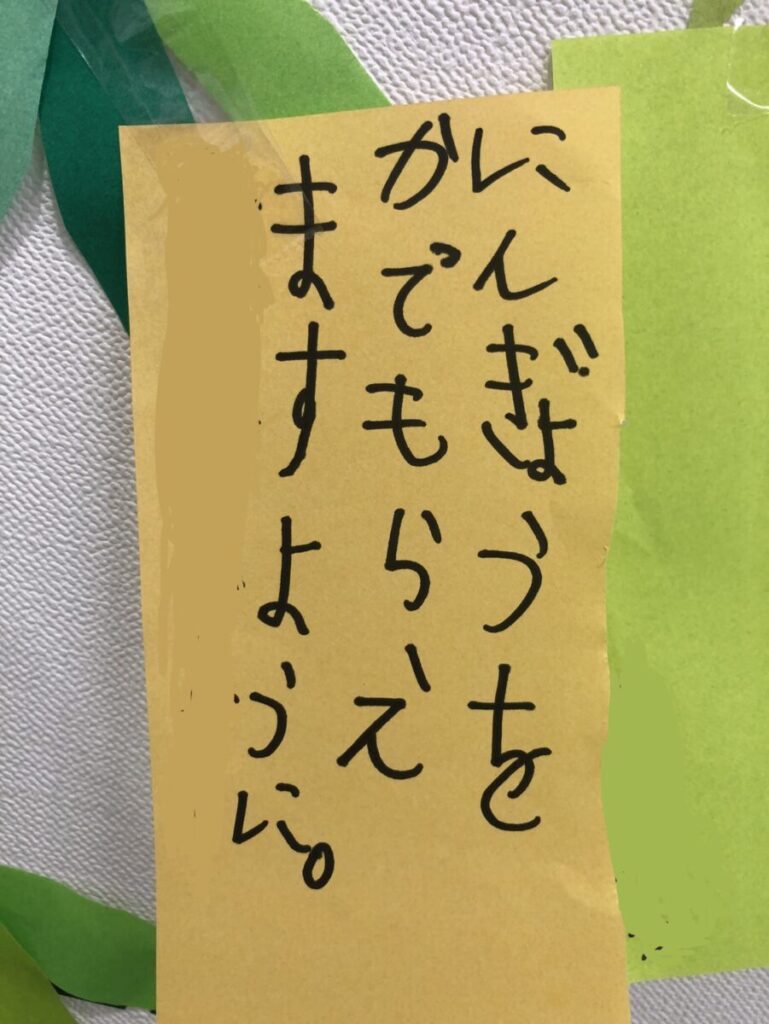 にんぎょうを
かってもらえ
ますように。